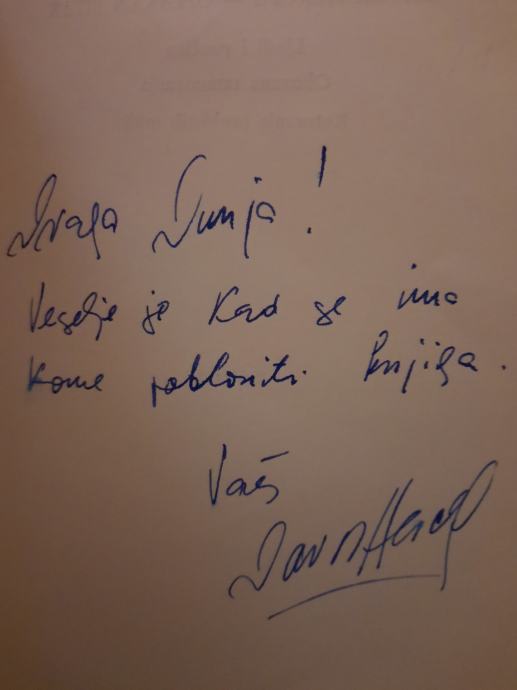 Draga Dunja!
Veselje je kad se ima
kome pokloniti knjiga.
Vaš
Davor